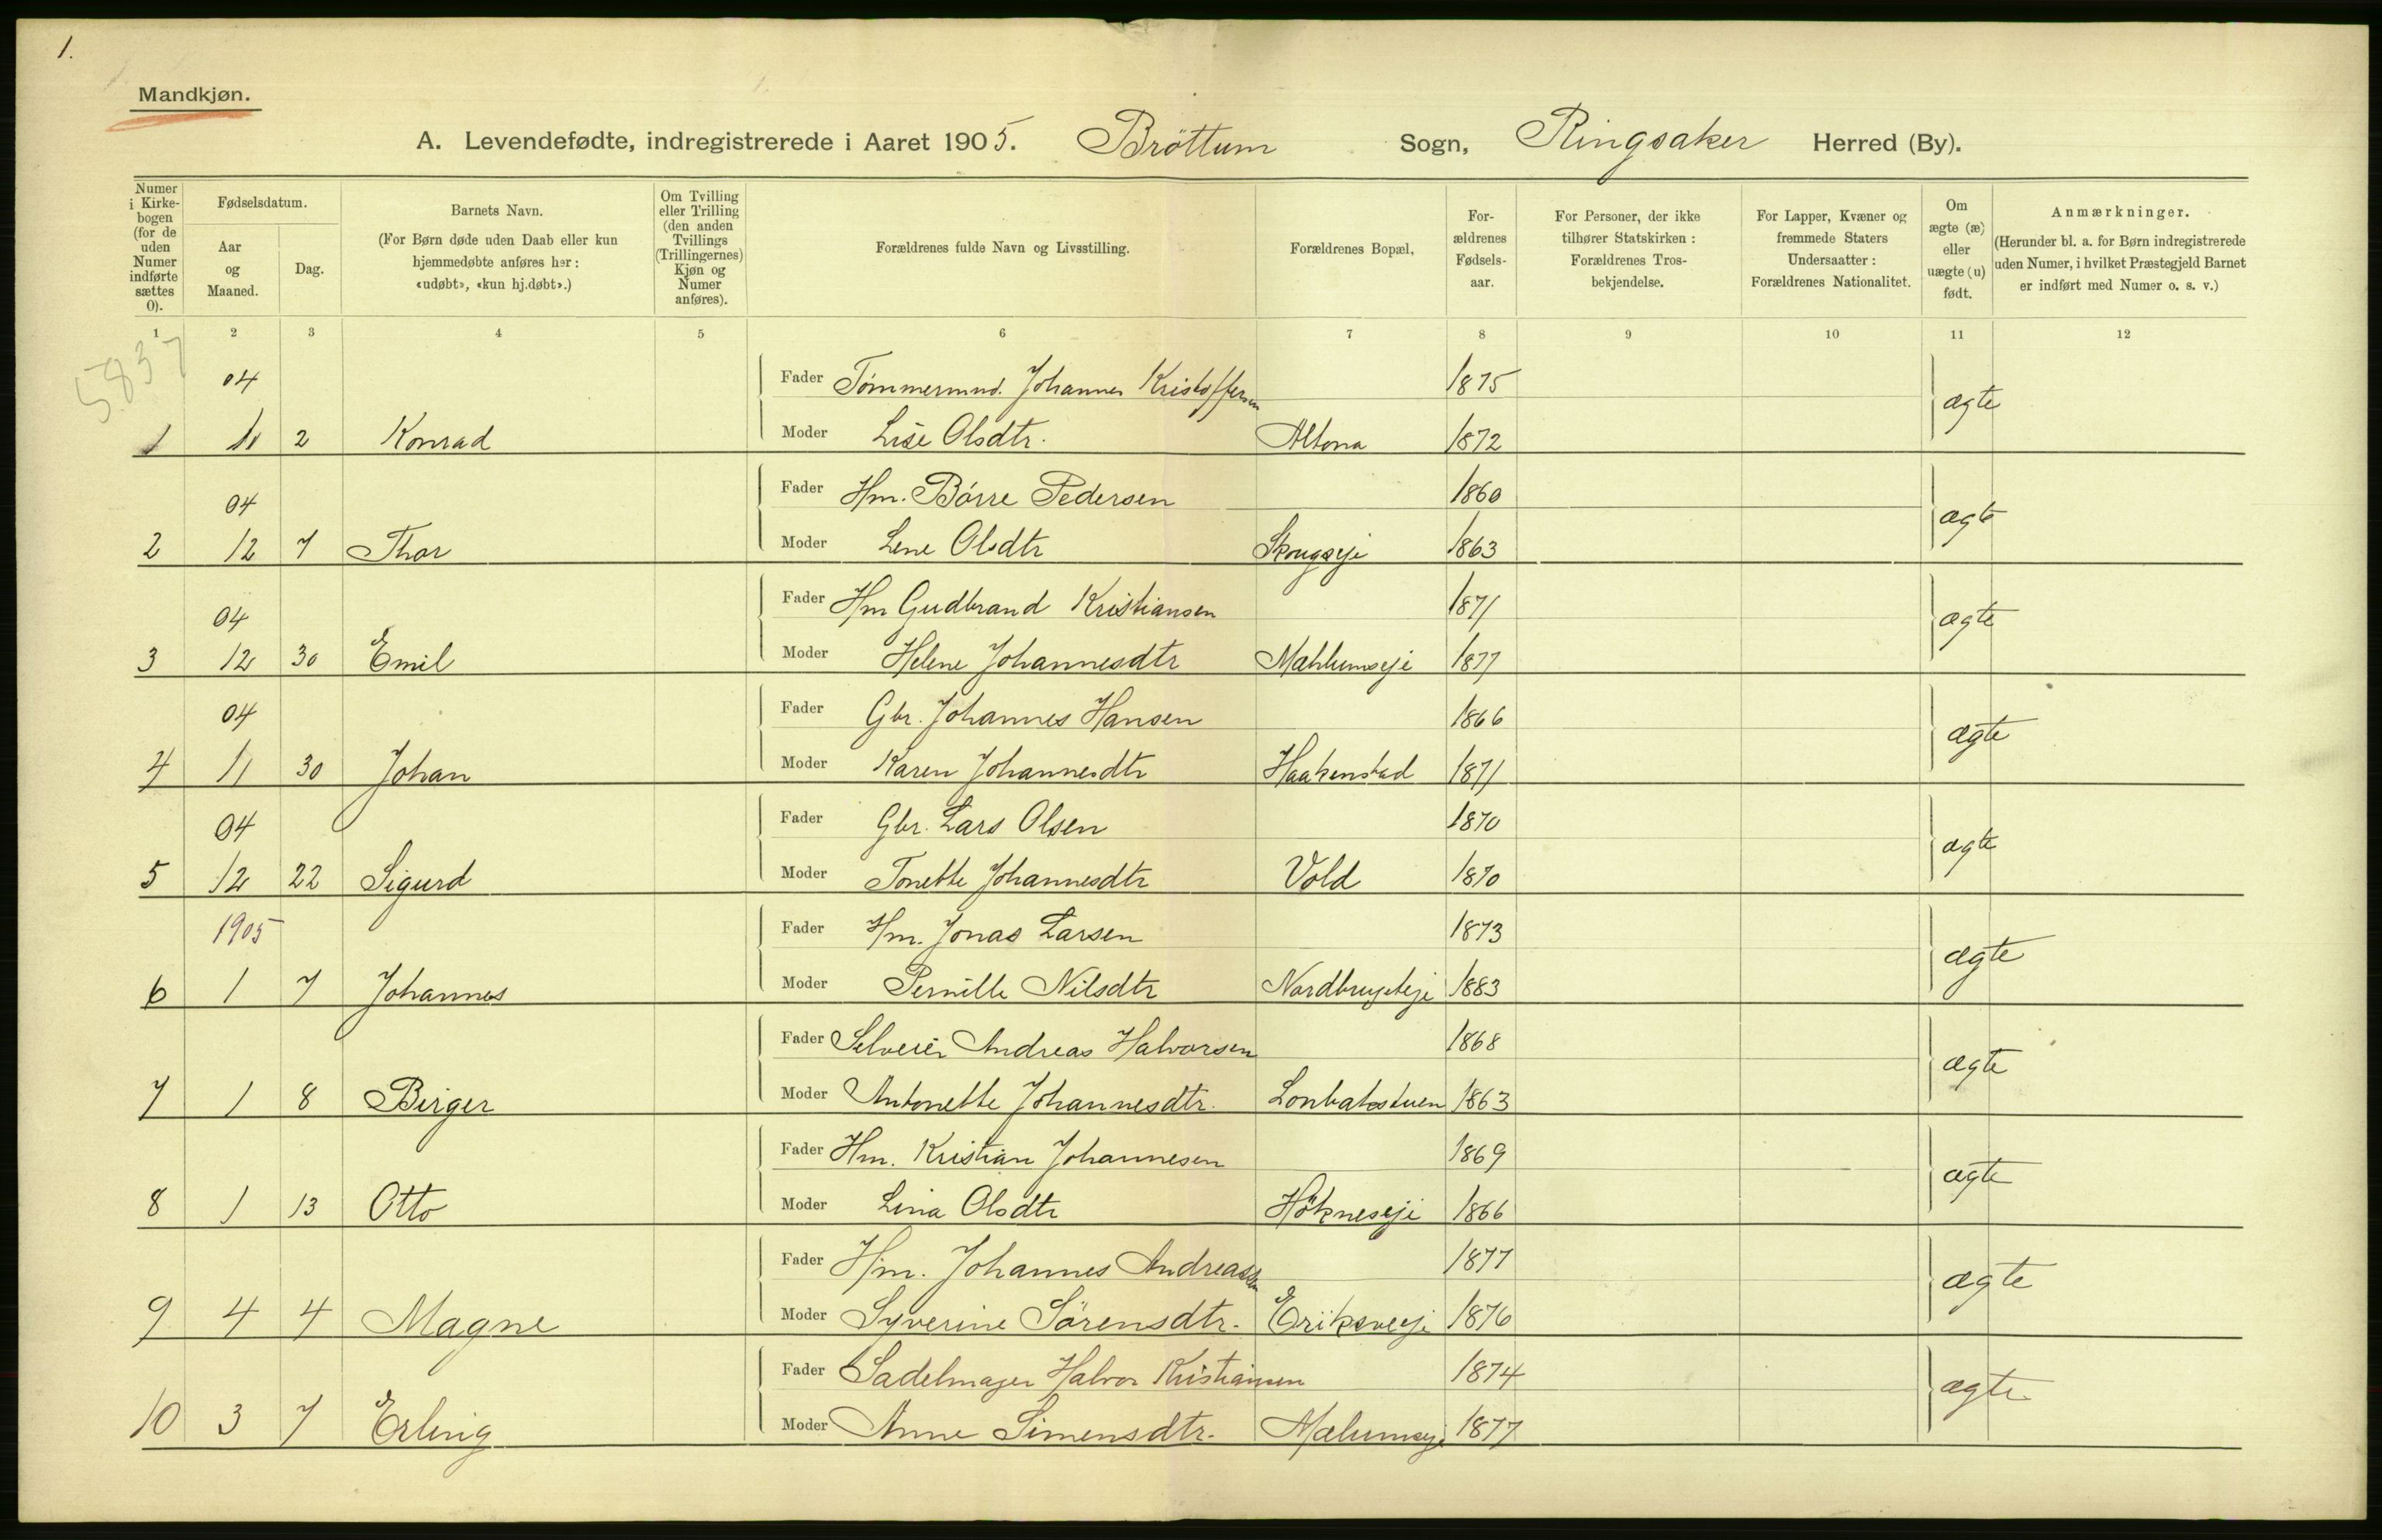 1.
Mandkjøn.
A. Levendefødte, indregistrerede i Aaret 1905. Bröttum Sogn, Ringsaker Herred (By).
Numer i Kirkebogen (for de uden Numer indførte sættes 0).
Fødselsdatum.
Aar og Maaned.
Dag.
Barnets Navn.
(For Børn døde uden Daab eller kun hjemmedøbte anføres her: «udøbt», «kun hj.døbt».)
Om Tvilling eller Trilling (den anden Tvillings (Trillingernes) Kjøn og Numer anføres).
Forældrenes fulde Navn og Livsstilling.
Forældrenes Bopæl,
Forældrenes Fødselsaar.
For Personer, der ikke tilhører Statskirken: Forældrenes Trosbekjendelse.
For Lapper, Kvæner og fremmede Staters Undersaatter: Forældrenes Nationalitet.
Om ægte (æ) eller uægte (u) født.
Anmærkninger.
(Herunder bl. a. for Børn indregistrerede uden Numer, i hvilket Præstegjeld Barnet er indført med Numer o. s. v.)
1 2 3 4 5 6 7 8 9 10 11 12
5837
04 Fader Tömmermnd. Johannes Kristoffersen 1875 ægte
1 11 2 Konrad Moder Lise Olsdtr. Altona 1872
04 Fader Hm. Börre Pedersen 1860 ægte
2 12 7 Thor Moder Lene Olsdtr Skougseje 1863
04 Fader Hm Gudbrand Kristiansen 1871 ægte
3 12 30 Emil Moder Helene Johannesdtr Mæhlumseje 1877
04 Fader Gbr. Johannes Hansen 1866 ægte
4 11 30 Johan Moder Karen Johannesdtr Haakenstad 1871
04 Fader Gbr. Lars Olsen 1870 ægte
5 12 22 Sigurd Moder Tonette Johannesdtr Vold 1870
1905 Fader Hm. Jonas Larsen 1873 ægte
6 1 7 Johannes Moder Pernille Nilsdtr 1883
Fader Selveier Andreas Halvorsen 1868 ægte
7 1 8 Birger Moder Antonette Johannesdtr. 1863
Fader Hm. Kristian Johannesen 1869 ægte
8 1 13 Otto Moder Lina Olsdtr Hökneseje 1866
Fader Hm. Johannes Andreassen 1877 ægte
9 4 4 Magne Moder Syverine Sörensdtr. 1876
Fader Sadelmager Halvor Kristiansen 1874 ægte
10 3 7 Erling Moder Anne Simensdtr. Mælumseje 1877